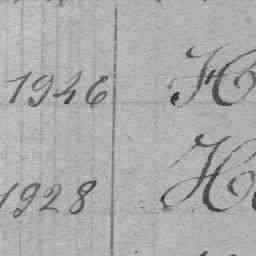 1946 H
1928 H